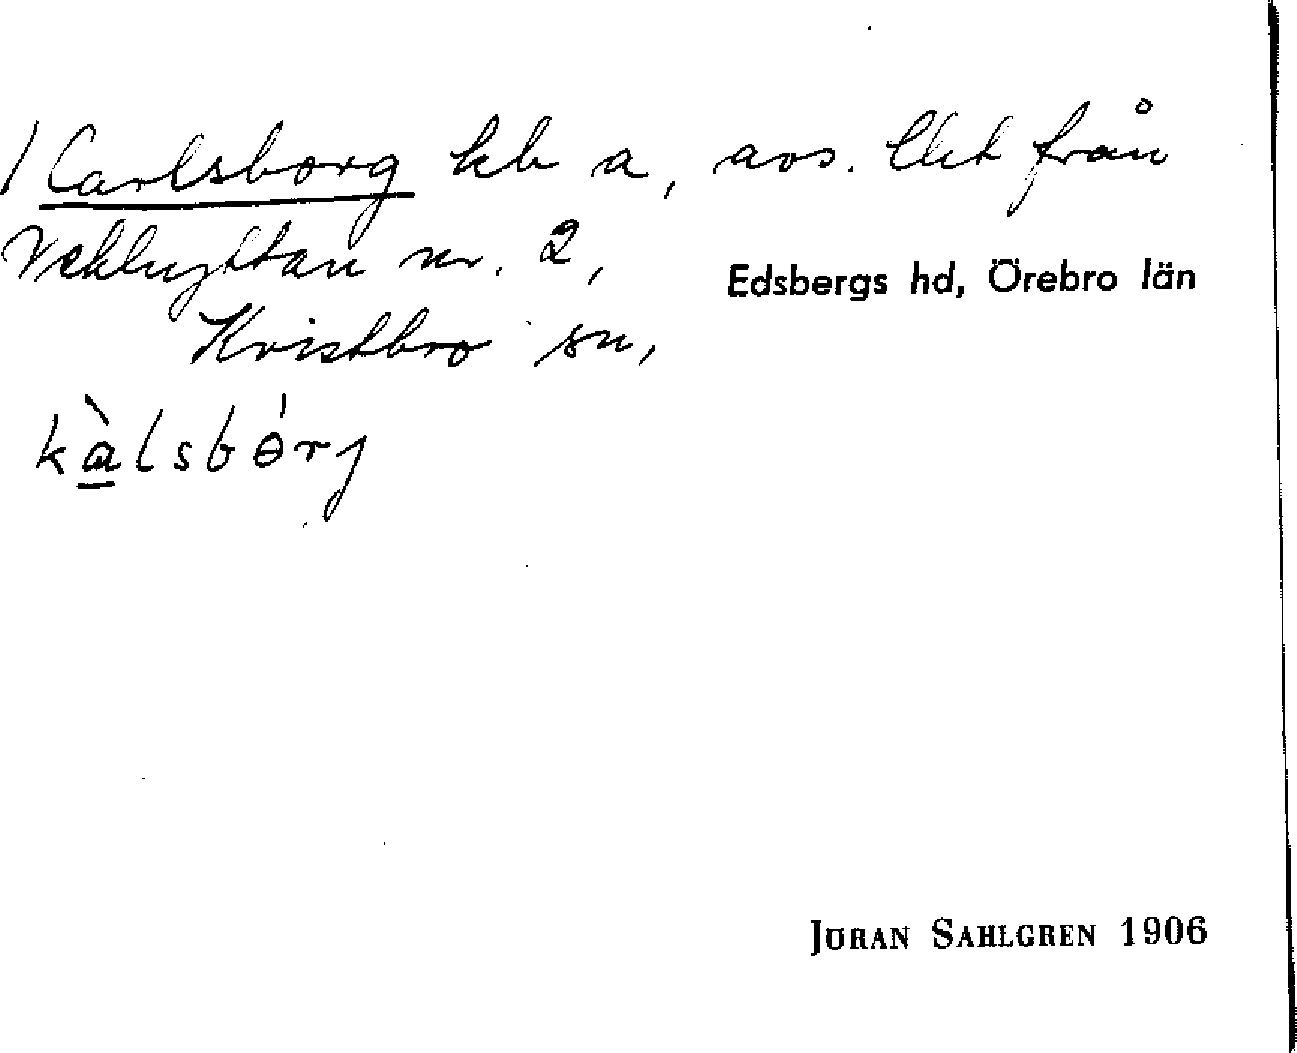 / Carlsborg hb a, avs. Ur från
Vekhyttan nr. 2,
Edsbergs hd, Örebro län
Kvistbro sn,
kàlsbɵ́rj
JÖRAN SAHLGREN 1906